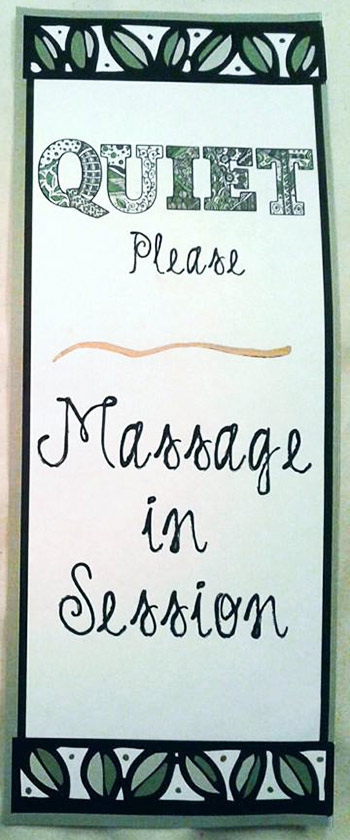 QUIET
Please
Massage
in
Session